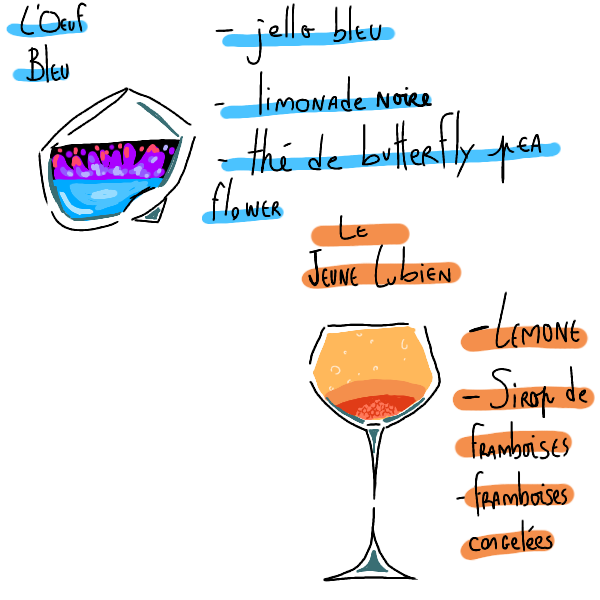 L'Oeuf
Bleu
- jello bleu
- limonade noire
- thé de butterfly pea
flower
Le
Jeune Lubien
- Lemone
- Sirop de
framboises
- framboises
congelées